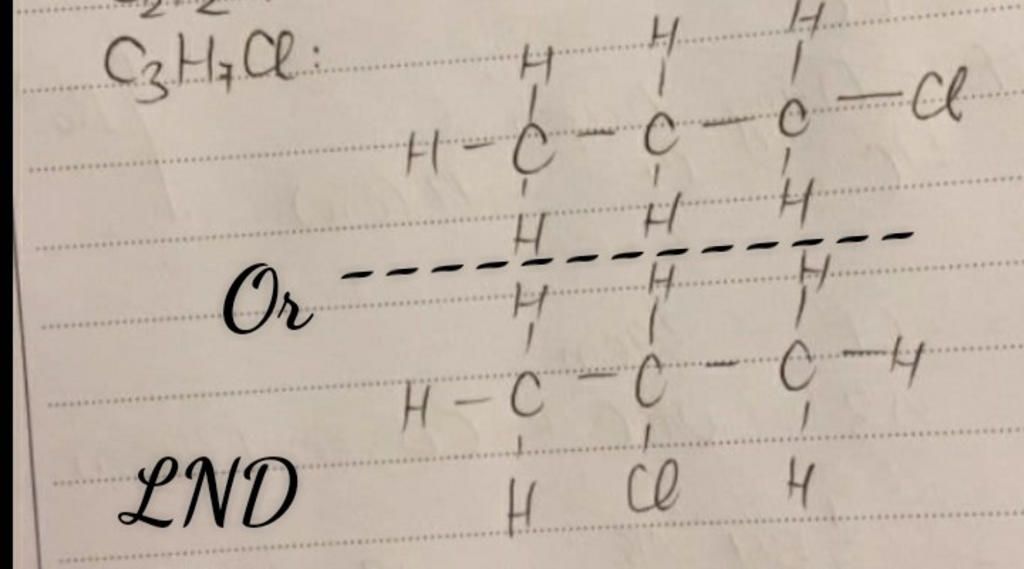 C₃H₇Cl:
H H H
H - C - C - C - Cl
H H H
Or
H H H
H - C - C - C - H
H Cl H
LND